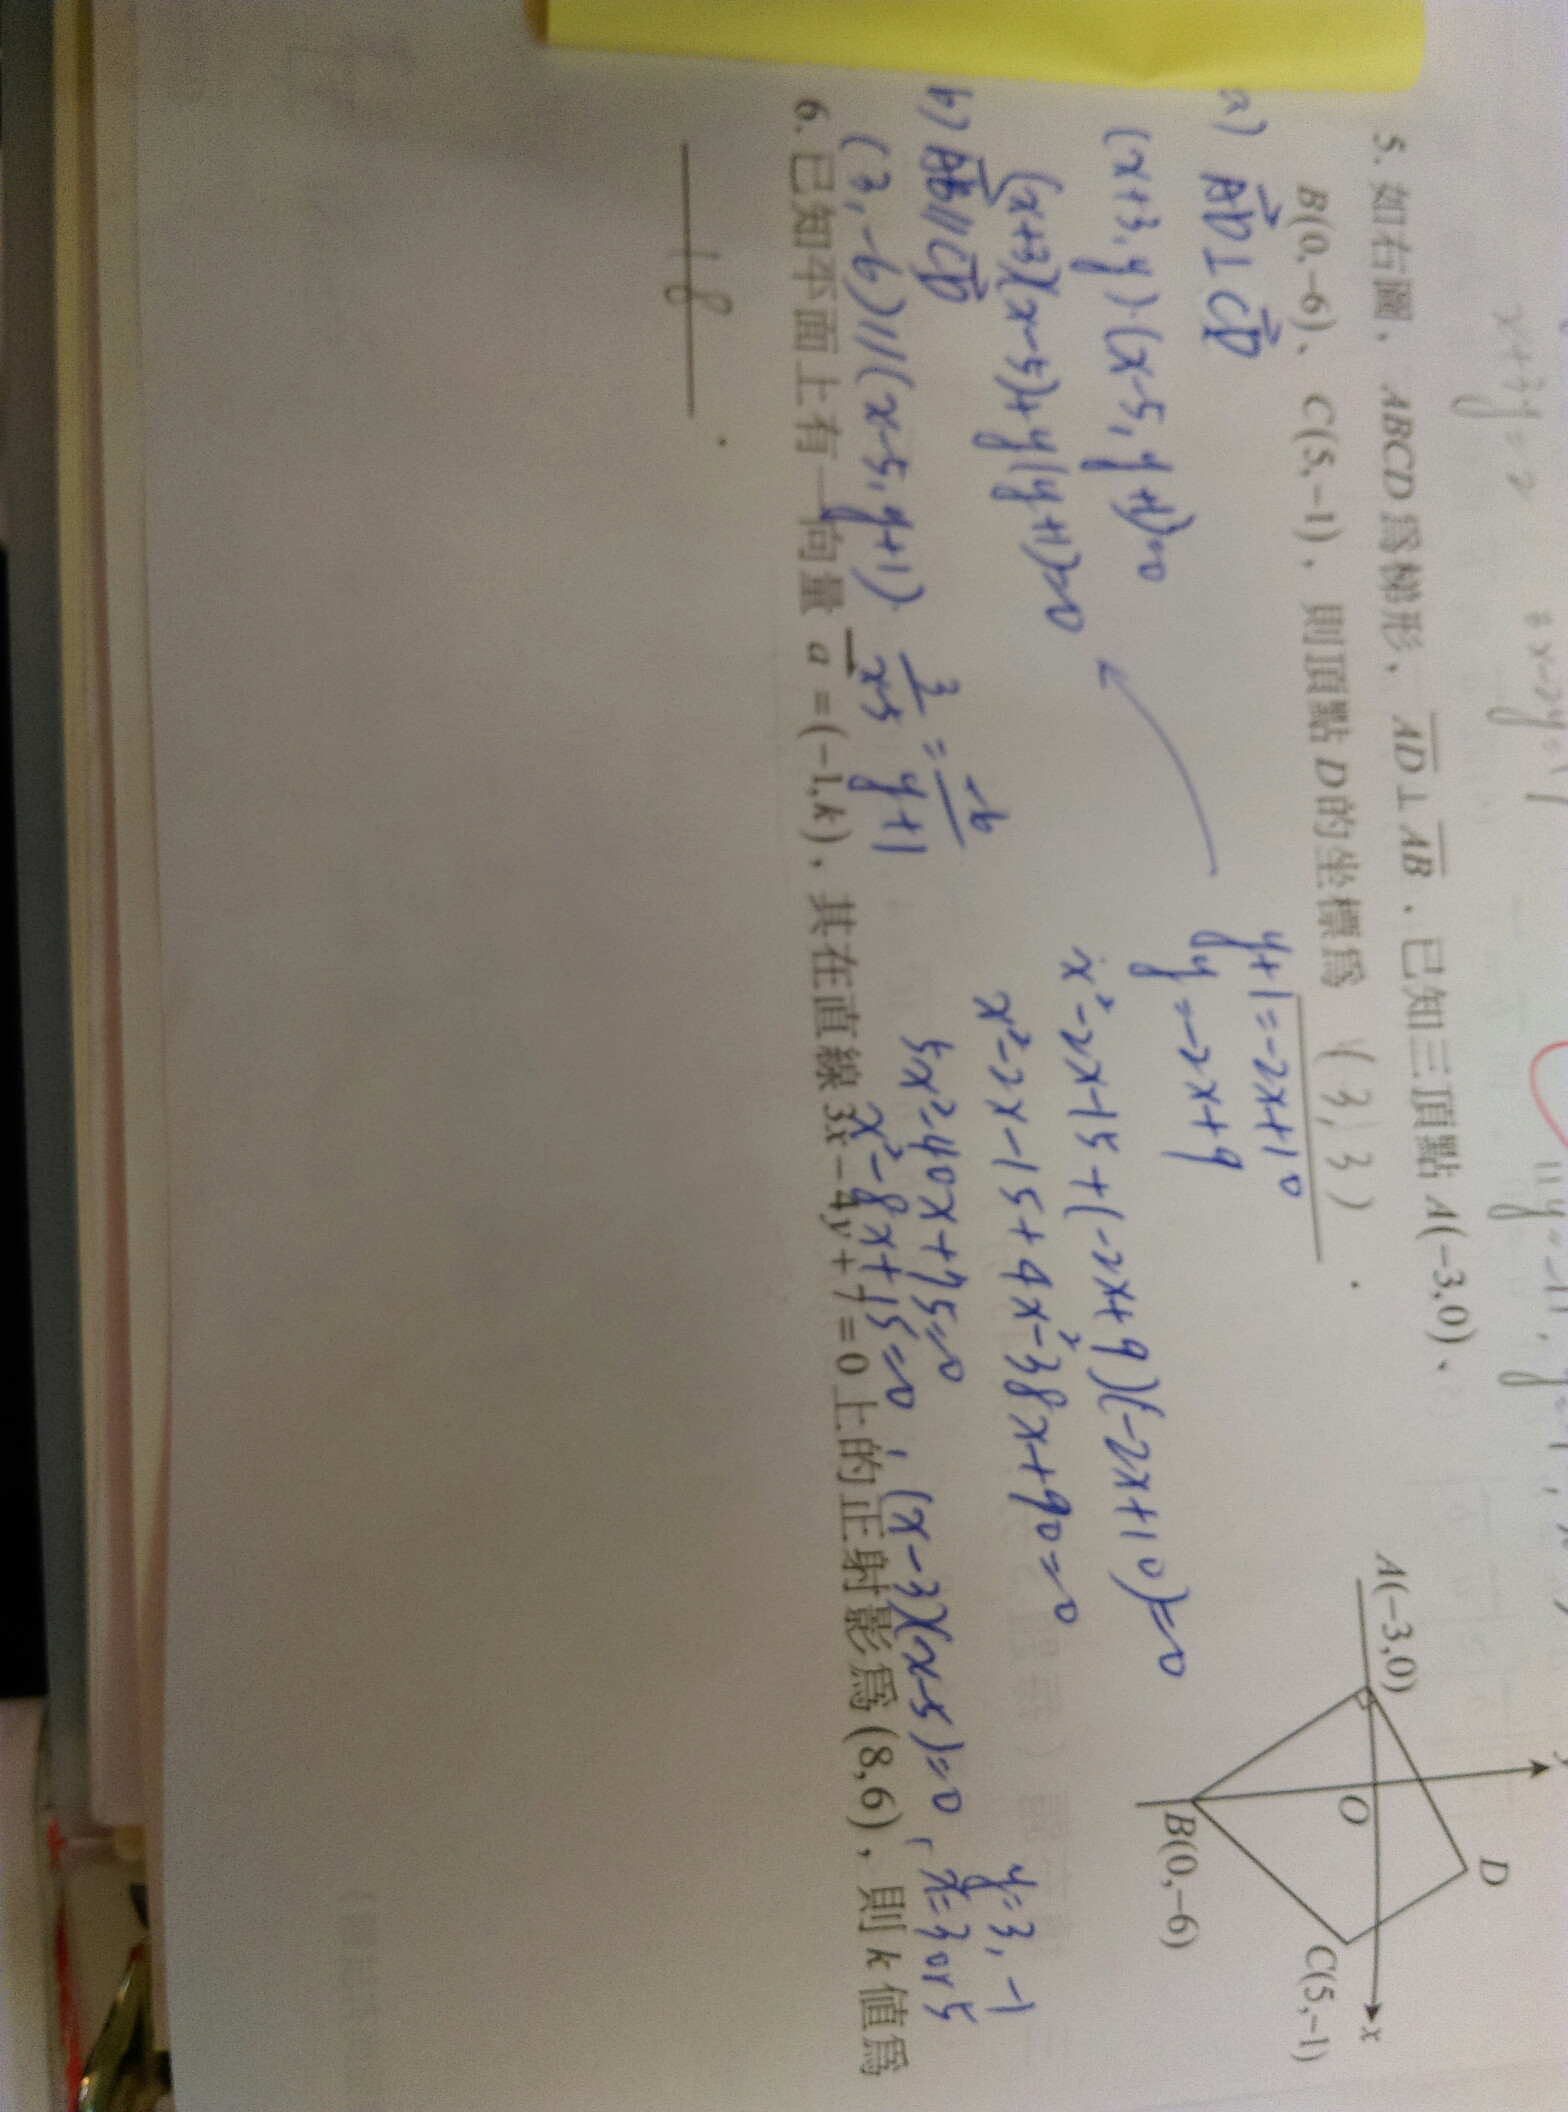 x+3y=2
5. 如右圖，ABCD為梯形，AD⊥AB，已知三頂點A(-3,0)、
B(0,-6)、C(5,-1)，則頂點D的坐標為 (3,3) .
A(-3,0)
D
O
x
B(0,-6)
C(5,-1)
y
a) AD⊥CD
(x+3,y)·(x-5,y+1)=0
(x+3)(x-5)+y(y+1)=0
b) AB//CD
(3,-6)//(x-5,y+1)
3/x-5 = -6/y+1
y+1=-2x+10
y=-2x+9
x²-2x-15+(-2x+9)(-2x+10)=0
x²-2x-15+4x²-38x+90=0
5x²-40x+75=0
x²-8x+15=0, (x-3)(x-5)=0, x=3 or 5
y=3, -1
6. 已知平面上有一向量a=(-1,k)，其在直線3x-4y+7=0上的正射影為(8,6)，則k值為
18 .